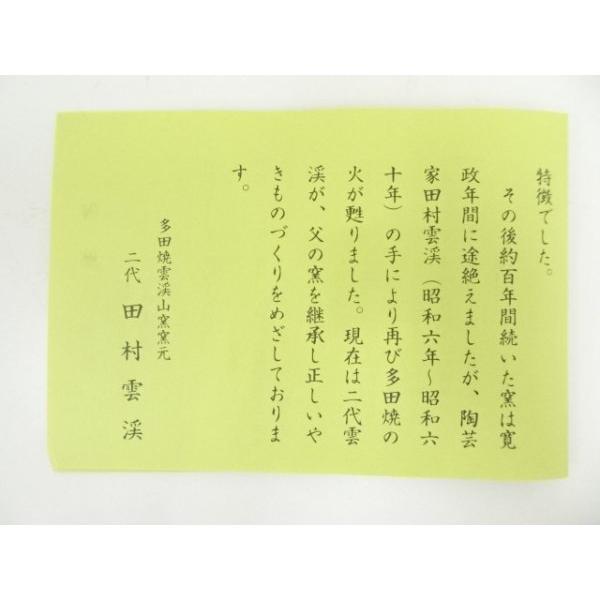 特徴でした。
その後約百年間続いた窯は寛
政年間に途絶えましたが、陶芸
家田村雲渓（昭和六年～昭和六
十年）の手により再び多田焼の
火が甦りました。現在は二代雲
渓が、父の窯を継承し正しいや
きものづくりをめざしておりま
す。
多田焼雲渓山窯窯元
二代 田村雲渓